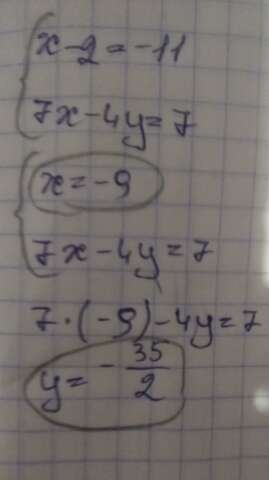 x-2=-11
7x-4y=7
x=-9
7x-4y=7
7·(-9)-4y=7
y=-35/2